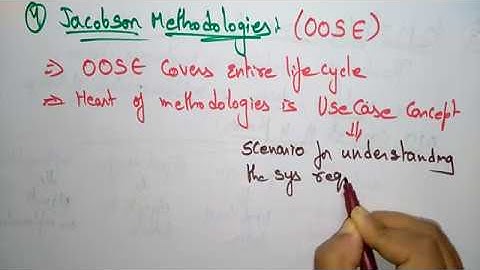 4) Jacobson Methodologies: (OOSE)
⇒ OOSE Covers Entire lifecycle
⇒ Heart of methodologies is UseCase Concept
⇓
Scenario for understanding
the sys req